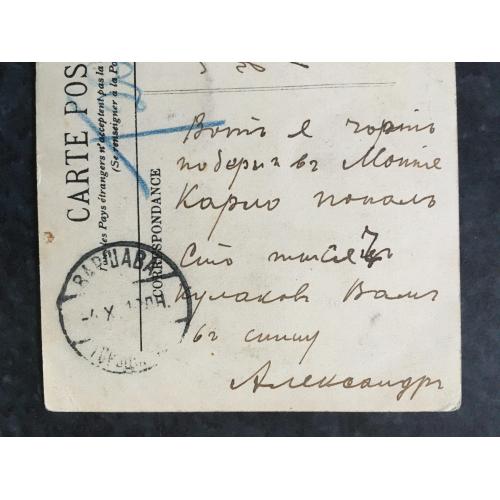 CARTE POS
les Pays étrangers n'acceptent pas la
(Se renseigner à la Po
CORRESPONDANCE
ВАРШАВА
4 X
Вотъ я чортъ
побери въ Монте
Карло попалъ
Сто тысячъ
кулаковъ Вамъ
въ спину
Александръ